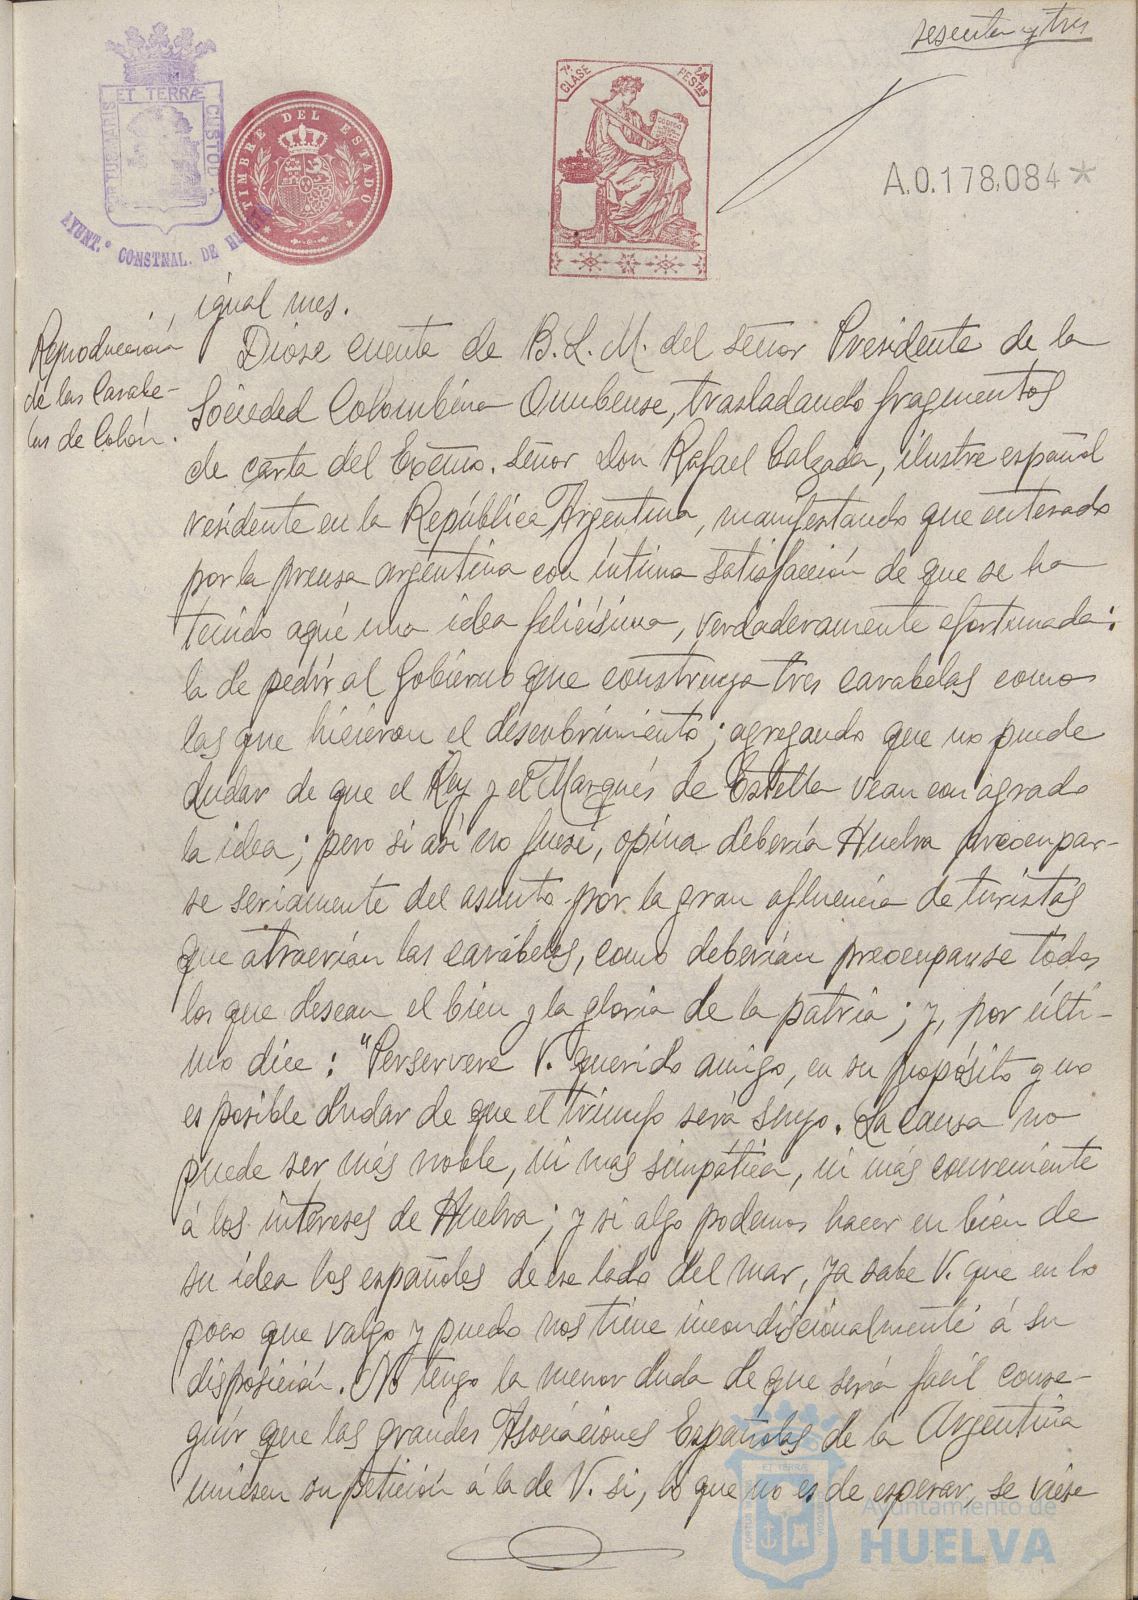 sesenta y tres
ET TERRÆ
PORTUS MARIS
CUSTODIA
AYUNT.º CONSTNAL. DE HUELVA
TIMBRE DEL ESTADO
7ª CLASE
PESTAS
A.0.178,084*
igual mes.
Reproducción
de las Carabe-
las de Colón.
Diose cuenta de B. L. M. del señor Presidente de la
Sociedad Colombina Onubense, trasladando fragmentos
de carta del Excmo. Señor Don Rafael Calzada, ilustre español
residente en la República Argentina, manifestando que enterado
por la prensa argentina con íntima satisfacción de que se ha
tenido aquí una idea felicísima, verdaderamente afortunada:
la de pedir al Gobierno que construya tres carabelas como
las que hicieron el descubrimiento; agregando que no puede
dudar de que el Rey y el Marqués de Estella vean con agrado
la idea; pero si así no fuese, opina debería Huelva preocupar-
se seriamente del asunto por la gran afluencia de turistas
que atraerían las carabelas, como deberían preocuparse todos
los que desean el bien y la gloria de la patria; y, por últi-
mo dice: "Perservere V. querido amigo, en su propósito y no
es posible dudar de que el triunfo será suyo. La causa no
puede ser más noble, ni mas simpática, ni más conveniente
á los intereses de Huelva; y si algo podemos hacer en bien de
su idea los españoles de ese lado del mar, ya sabe V. que en lo
poco que valgo y puedo nos tiene incondicionalmente á su
disposición. No tengo la menor duda de que sería facil conse-
guir que las grandes Asociaciones Españolas de la Argentina
uniesen su petición á la de V. si, lo que no es de esperar, se viese
ET TERRÆ
Ayuntamiento de
HUELVA